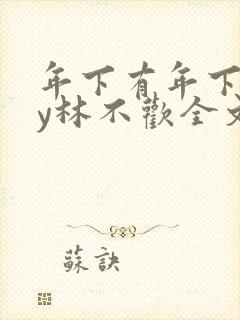 年下有年下
y林不歡全文
蘇訣